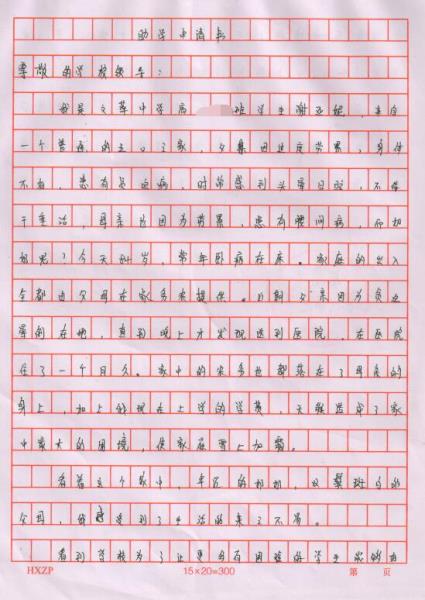 助学申请书
尊敬的学校领导：
我是文革中学高 班学生谢 ，来自
一个普通的 口之家，父亲因过度劳累，身体
不好，患有贫血病，时常感到头晕目眩，不能
干重活，母亲也因为劳累，患有腰间病，而
奶 ？今天 岁，常年卧病在床。家庭的收入
全都由父母在家务农提供。 期父亲因为贫血
晕倒在地，直到晚上才发现送到医院，在医院
住了一个月久。家中的农务也都落在了母亲的
身上，加上我现在上学的学费，无疑造成了家
中家大的困境，使家庭雪上加霜。
看着这个家中，年迈的奶奶，双鬓斑白的
父母，使我感到了生活的来之不易。
看到学校为了让更多有困难的学生能够
HXZP
15×20=300
第 页